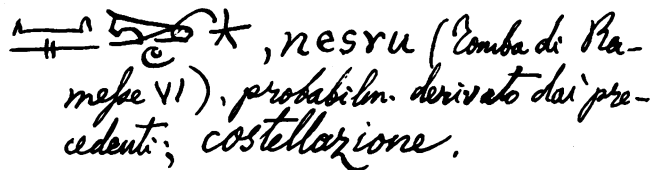 , nesru (Tomba di Ra-
messe VI), probabilm. derivato dai pre-
cedenti; costellazione.